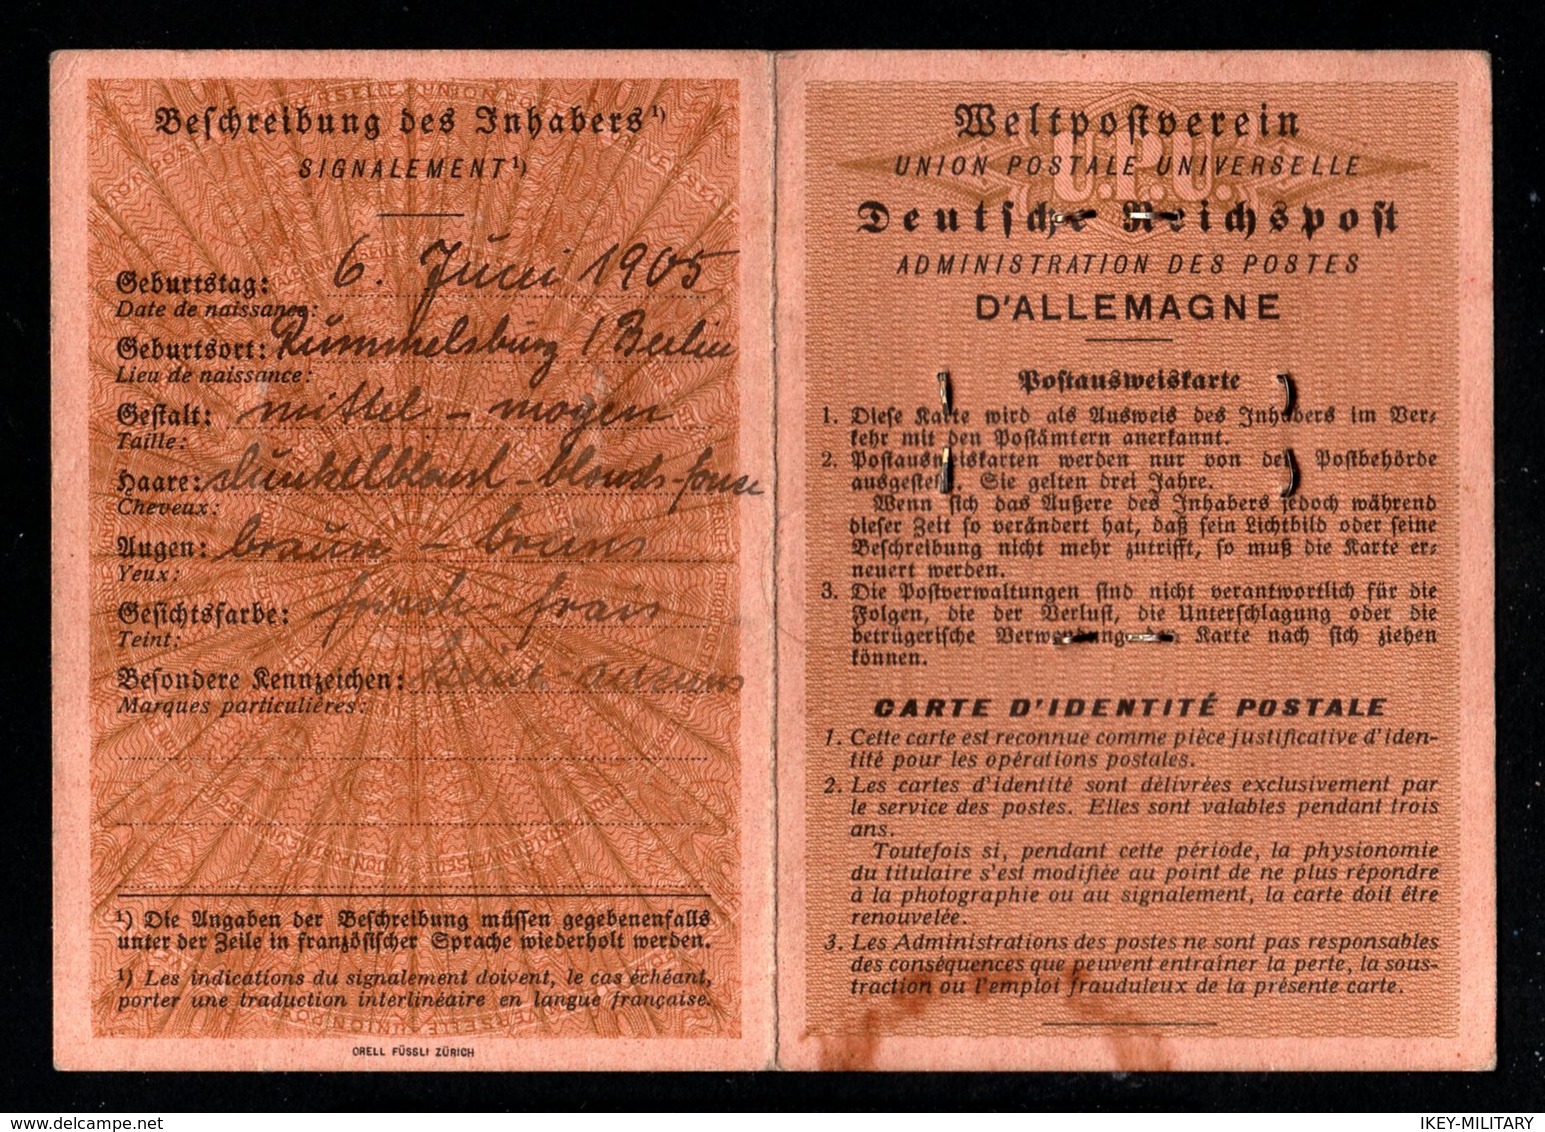 Beschreibung des Inhabers¹)
SIGNALEMENT¹)
Geburtstag: 6. Juni 1905
Date de naissance:
Geburtsort: Rummelsburg / Berlin
Lieu de naissance:
Gestalt: mittel – moyen
Taille:
Haare: dunkelblond – blonds-foncé
Cheveux:
Augen: braun – bruns
Yeux:
Gesichtsfarbe: frisch – frais
Teint:
Besondere Kennzeichen: keine – aucuns
Marques particulières:
¹) Die Angaben der Beschreibung müssen gegebenenfalls
unter der Zeile in französischer Sprache wiederholt werden.
¹) Les indications du signalement doivent, le cas échéant,
porter une traduction interlinéaire en langue française.
ORELL FÜSSLI ZÜRICH
Weltpostverein
UNION POSTALE UNIVERSELLE
U.P.U.
Deutsche Reichspost
ADMINISTRATION DES POSTES
D'ALLEMAGNE
Postausweiskarte
1. Diese Karte wird als Ausweis des Inhabers im Ver-
kehr mit den Postämtern anerkannt.
2. Postausweiskarten werden nur von den Postbehörde
ausgestellt. Sie gelten drei Jahre.
Wenn sich das Äußere des Inhabers jedoch während
dieser Zeit so verändert hat, daß sein Lichtbild oder seine
Beschreibung nicht mehr zutrifft, so muß die Karte er-
neuert werden.
3. Die Postverwaltungen sind nicht verantwortlich für die
Folgen, die der Verlust, die Unterschlagung oder die
betrügerische Verwendung Karte nach sich ziehen
können.
CARTE D'IDENTITÉ POSTALE
1. Cette carte est reconnue comme pièce justificative d'iden-
tité pour les opérations postales.
2. Les cartes d'identité sont délivrées exclusivement par
le service des postes. Elles sont valables pendant trois
ans.
Toutefois si, pendant cette période, la physionomie
du titulaire s'est modifiée au point de ne plus répondre
à la photographie ou au signalement, la carte doit être
renouvelée.
3. Les Administrations des postes ne sont pas responsables
des conséquences que peuvent entraîner la perte, la sous-
traction ou l'emploi frauduleux de la présente carte.
IKEY-MILITARY